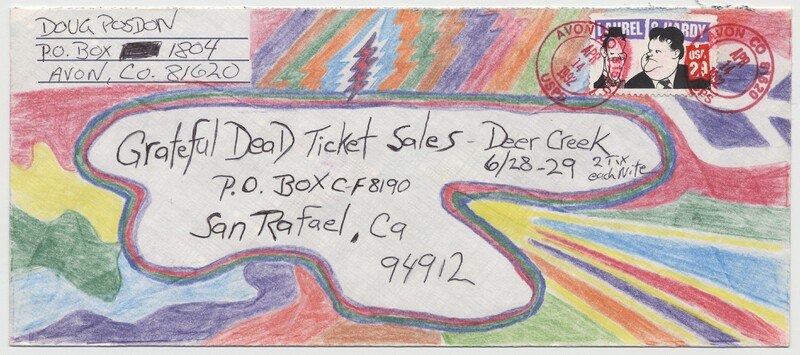 DOUG POSDON
P.O. BOX 1804
AVON, CO. 81620
LAUREL & HARDY
USA
29
AVON CO 81620
APR
14
1992
USPS
AVON CO 81620
APR
14
Grateful Dead Ticket Sales - Deer Creek
6/28-29 2 Tix
each Nite
P.O. Box C-F 8190
San Rafael, Ca
94912